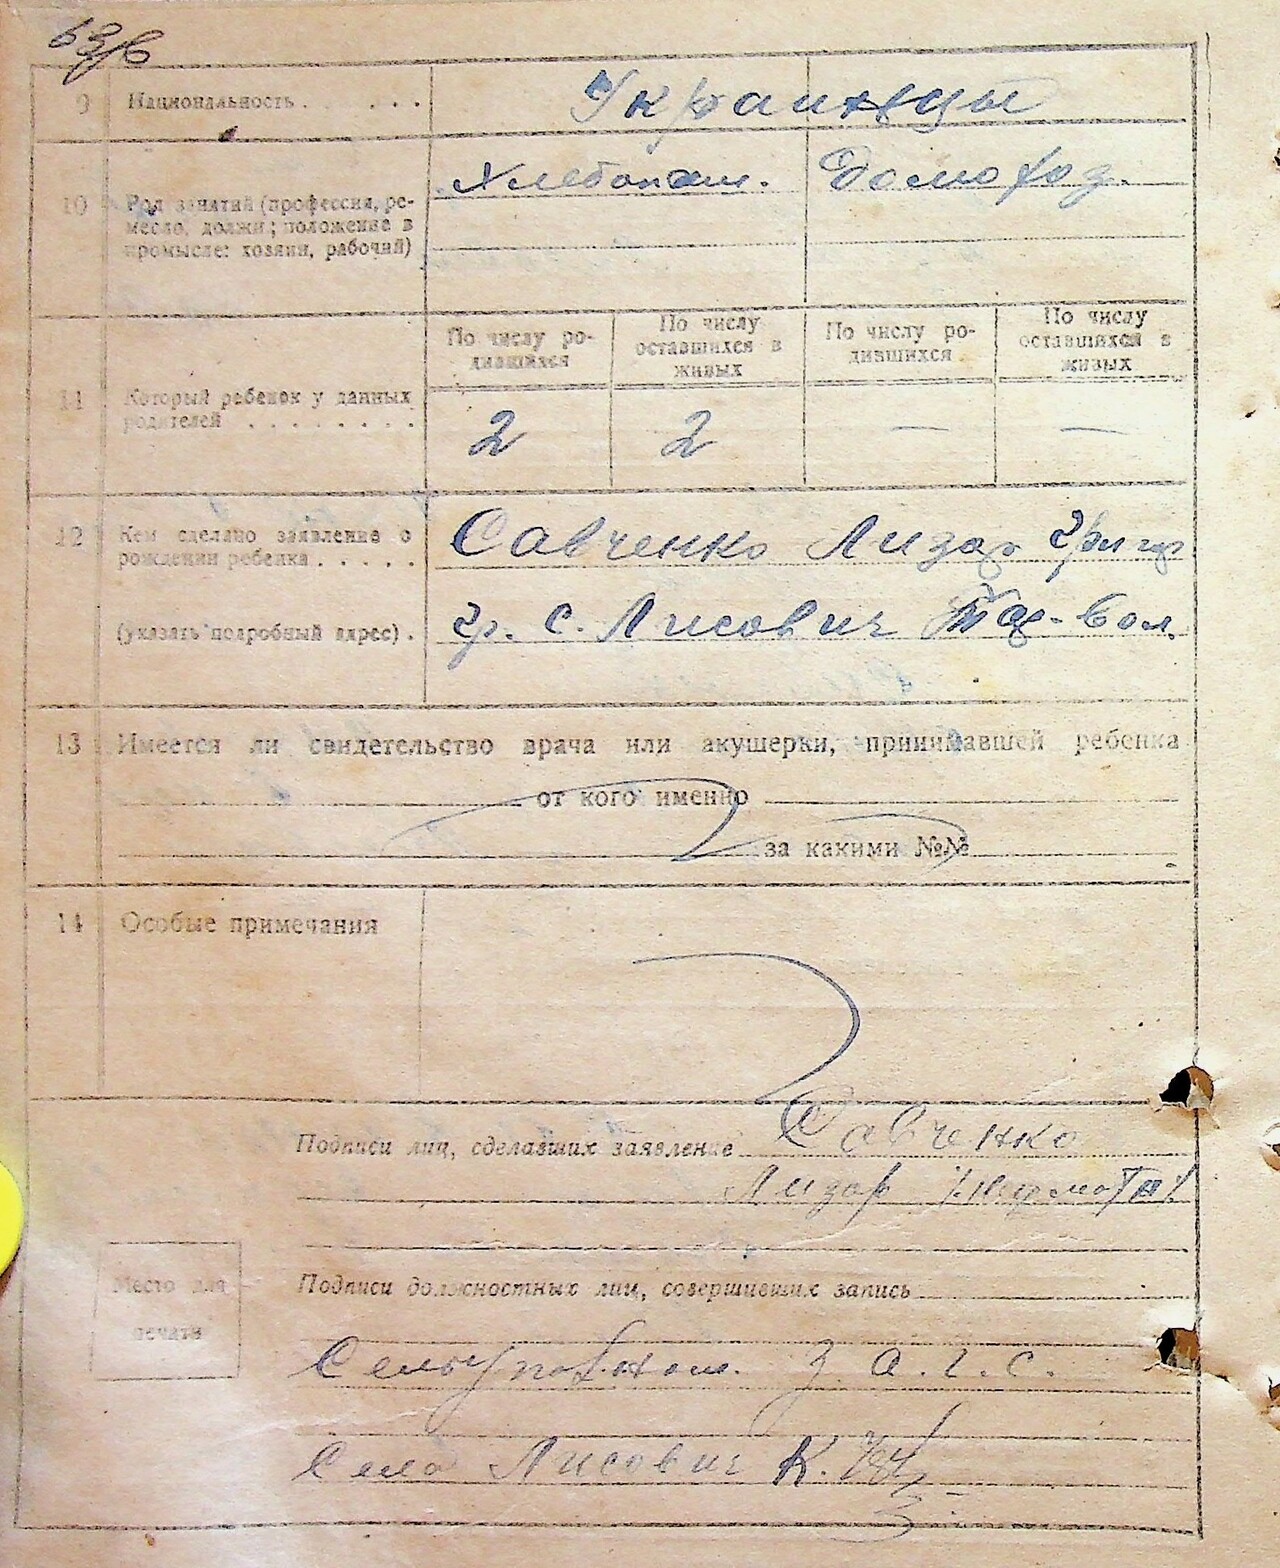 9 Национальность . . . . . . Украинцы
10 Род занятий (профессия, ре-
месло, должн; положение в
промысле: хозяин, рабочий)
Хлебопаш. Домохоз.
По числу ро-
дившихся
По числу
оставшихся в
живых
По числу ро-
дившихся
По числу
оставшихся в
живых
11 Который ребенок у данных
родителей . . . . . . . .
2 2 — —
12 Кем сделано заявление о
рождении ребенка . . . . .
Савченко Лизар Григор
(указать подробный адрес) . гр. С. Лисович
13 Имеется ли свидетельство врача или акушерки, принимавшей ребенка
от кого именно
за какими №№
14 Особые примечания
Подписи лиц, сделавших заявление Савченко
Лизар
Место для
печати
Подписи должностных лиц, совершивших запись
З.А.Г.С.
Село Лисович К.